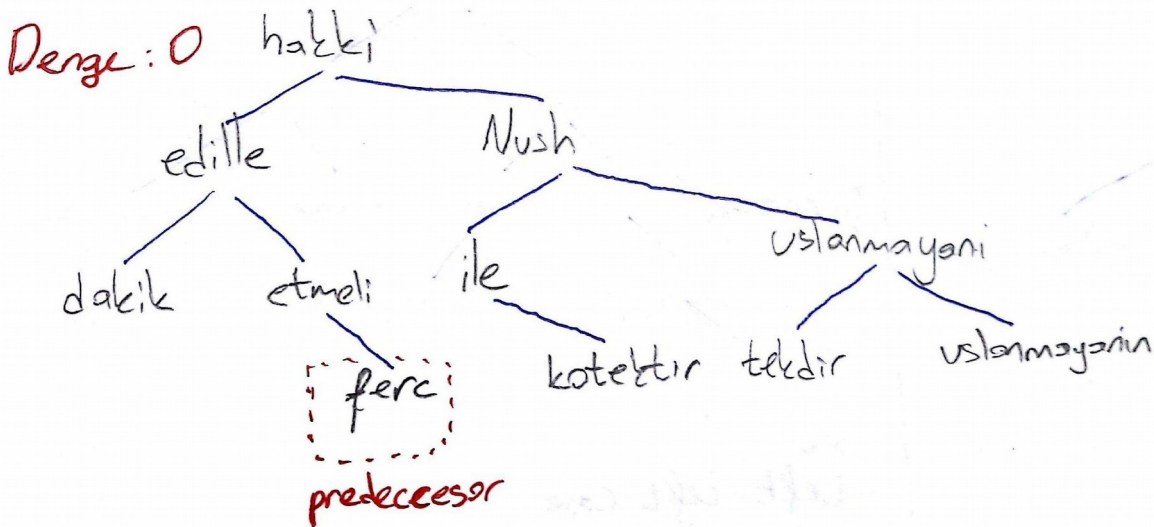 Denge : 0
hakki
edille
Nushi
dakik
etmeli
ile
uslanmayani
ferc
kotektir
tekdir
uslanmayanin
predeceesor